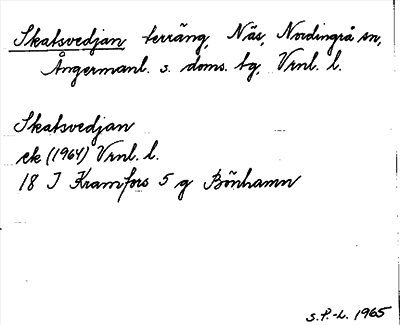 Skatsvedjan terräng, Näs, Nordingrå sn,
Ångermanl. s. doms. tg, Vrnl. l.
Skatsvedjan
ek (1964) Vrnl. l.
18 I Kramfors 5 g Bönhamn
S.P.-L. 1965